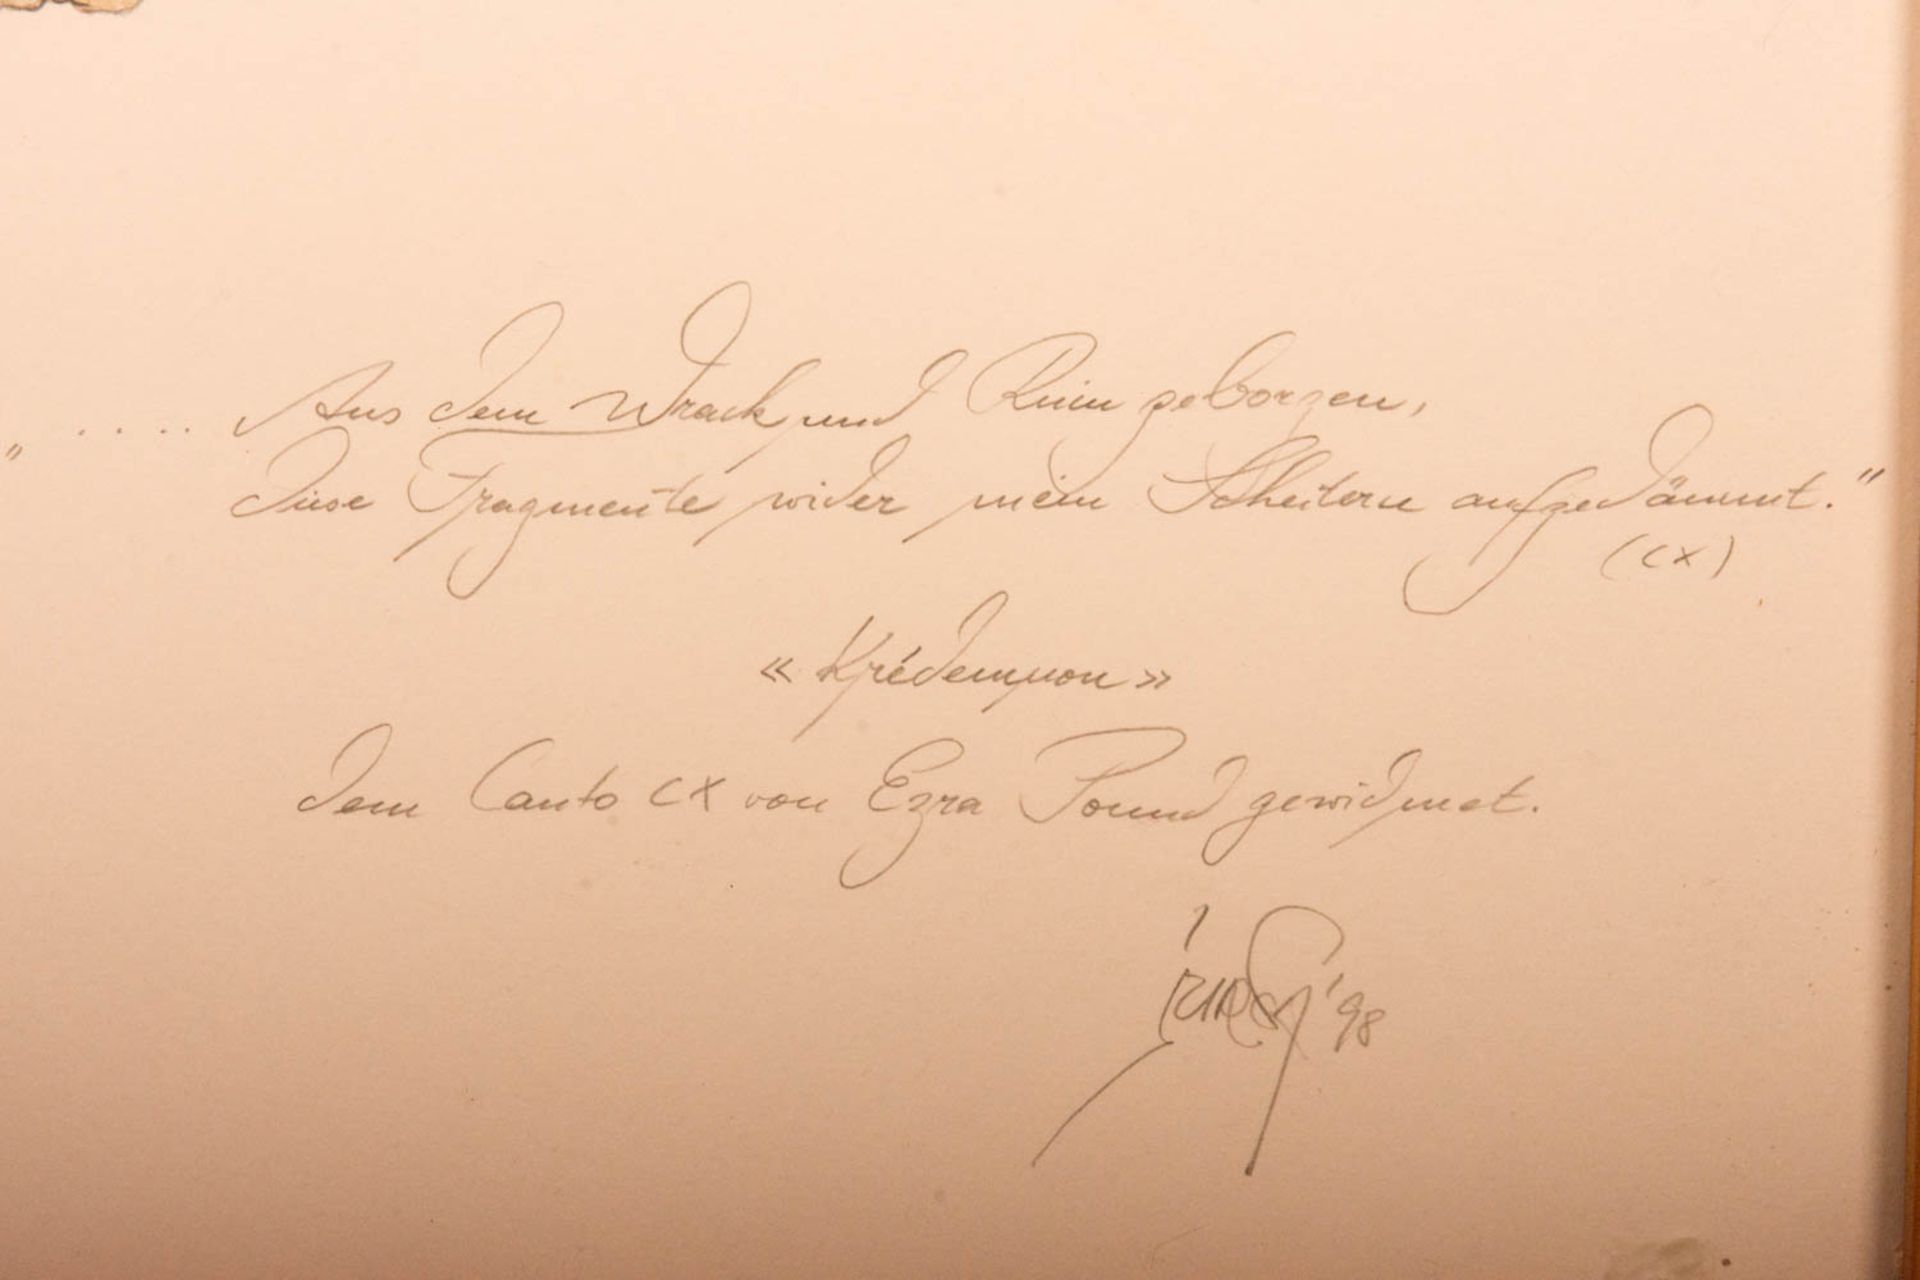 „ .... Aus dem Wrack und Ruin geborgen,
Diese Fragmente wider mein Scheitern aufgedämmt."
(CX)
« Krédemnon »
dem Canto CX von Ezra Pound gewidmet.
'98